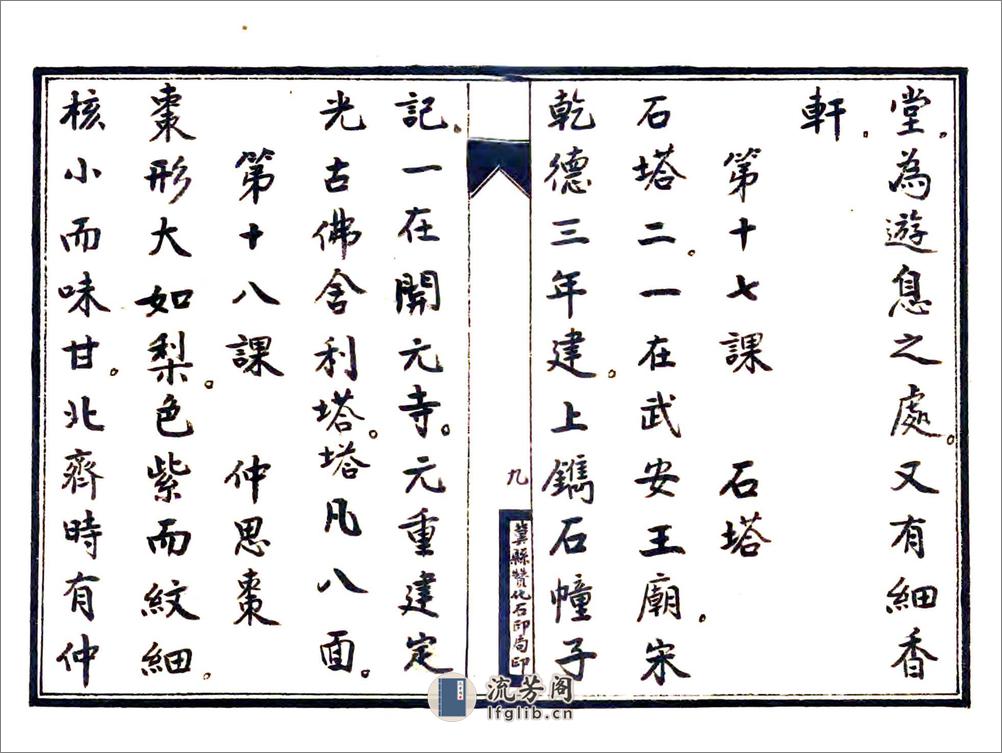 堂。為遊息之處。又有細香
軒。
第十七課　石塔
石塔二。一在武安王廟。宋
乾德三年建。上鐫石幢子
九
冀縣贊化石印局印
記。一在開元寺。元重建定
光古佛舍利塔。塔凡八面。
第十八課　仲思棗
棗形大如梨。色紫而紋細。
核小而味甘。北齊時有仲
流芳阁
lfglib.cn